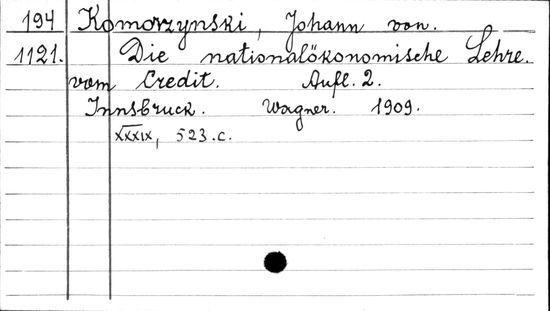 194 Komorzynski, Johann von.
1121. Die nationalökonomische Lehre.
vom Credit. Aufl. 2.
Innsbruck. Wagner. 1909.
XXXIX, 523.c.